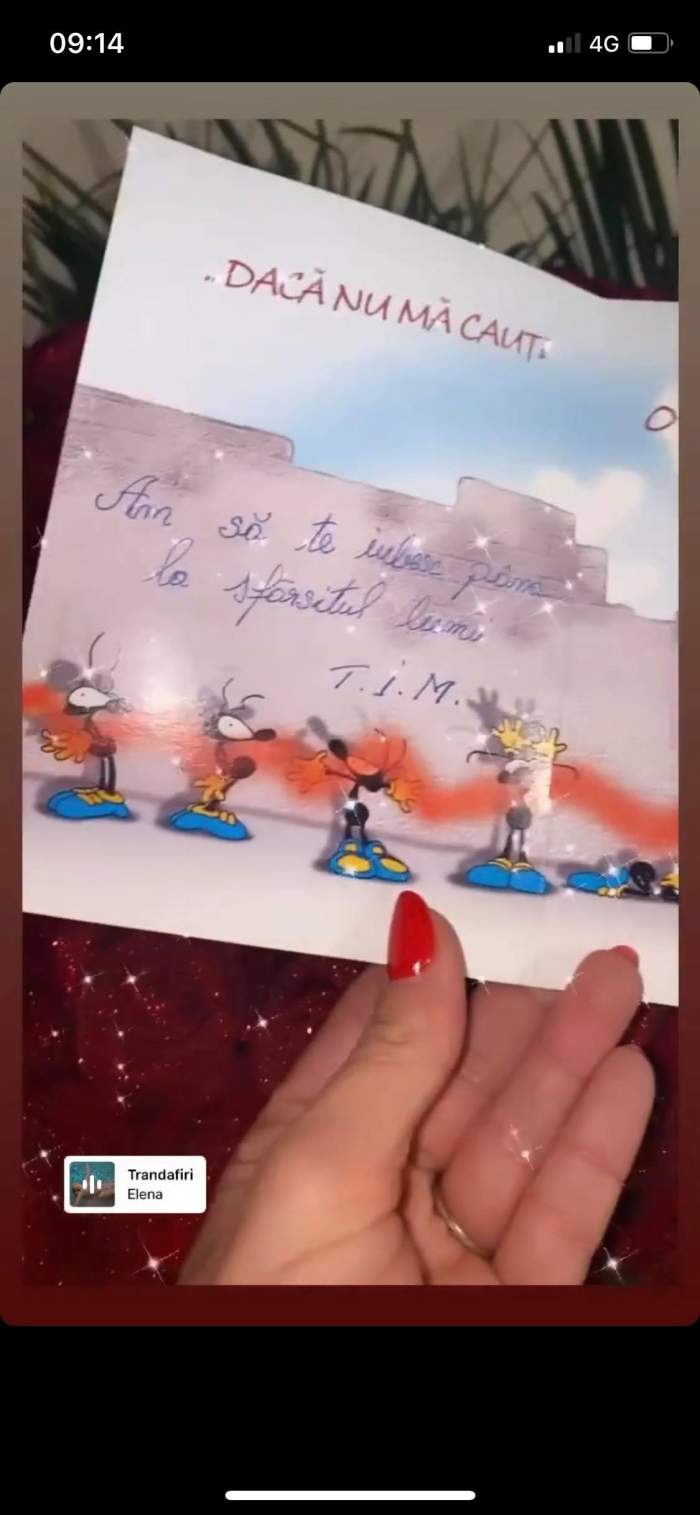 09:14
4G
.. DACĂ NU MĂ CAUȚI
O
Am să te iubesc până
la sfârșitul lumii
T.I.M.
Trandafiri
Elena